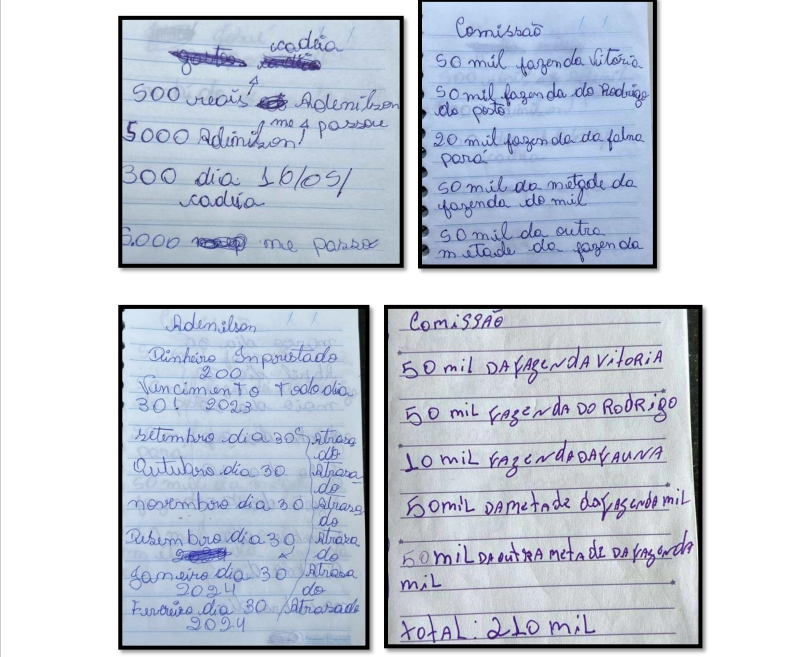 cadêa
500 reais Adenilson
me passou
5000 Adinilson
300 dia 16/05/
cadêa
5.000 me passou
Comissão
50 mil fazenda Vitória
50 mil fazenda do Rodrigo
do posto
20 mil fazenda da falna
pará
50 mil da metade da
fazenda do mil
50 mil da outra
metade da fazenda
Adenilson
Dinheiro Imprestado
200
Vancimento todo dia
30 2023
setembro dia 30 Atrasa
do
Outubro dia 30 Atrasa
do
novembro dia 30 Atrasa
do
Desembro dia 30 Atrasa
do
Janeiro dia 30 Atrasa
2024 do
Fevereiro dia 30 Atrasado
2024
Comissão
50 mil DA fazenda Vitoria
50 mil fazenda do Rodrigo
10 mil fazenda da fauna
50 mil da metade da fazenda mil
50 mil da outra metade da fazenda
mil
total: 210 mil